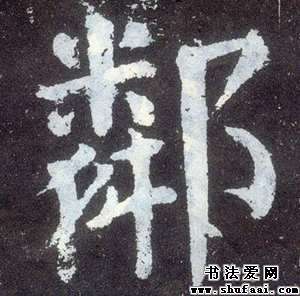 鄰
书法爱网
www.shufaai.com